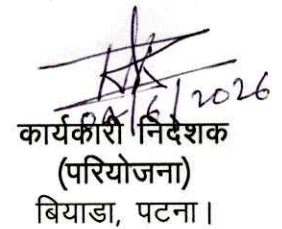 /6/2026
कार्यकारी निदेशक
(परियोजना)
बियाडा, पटना।